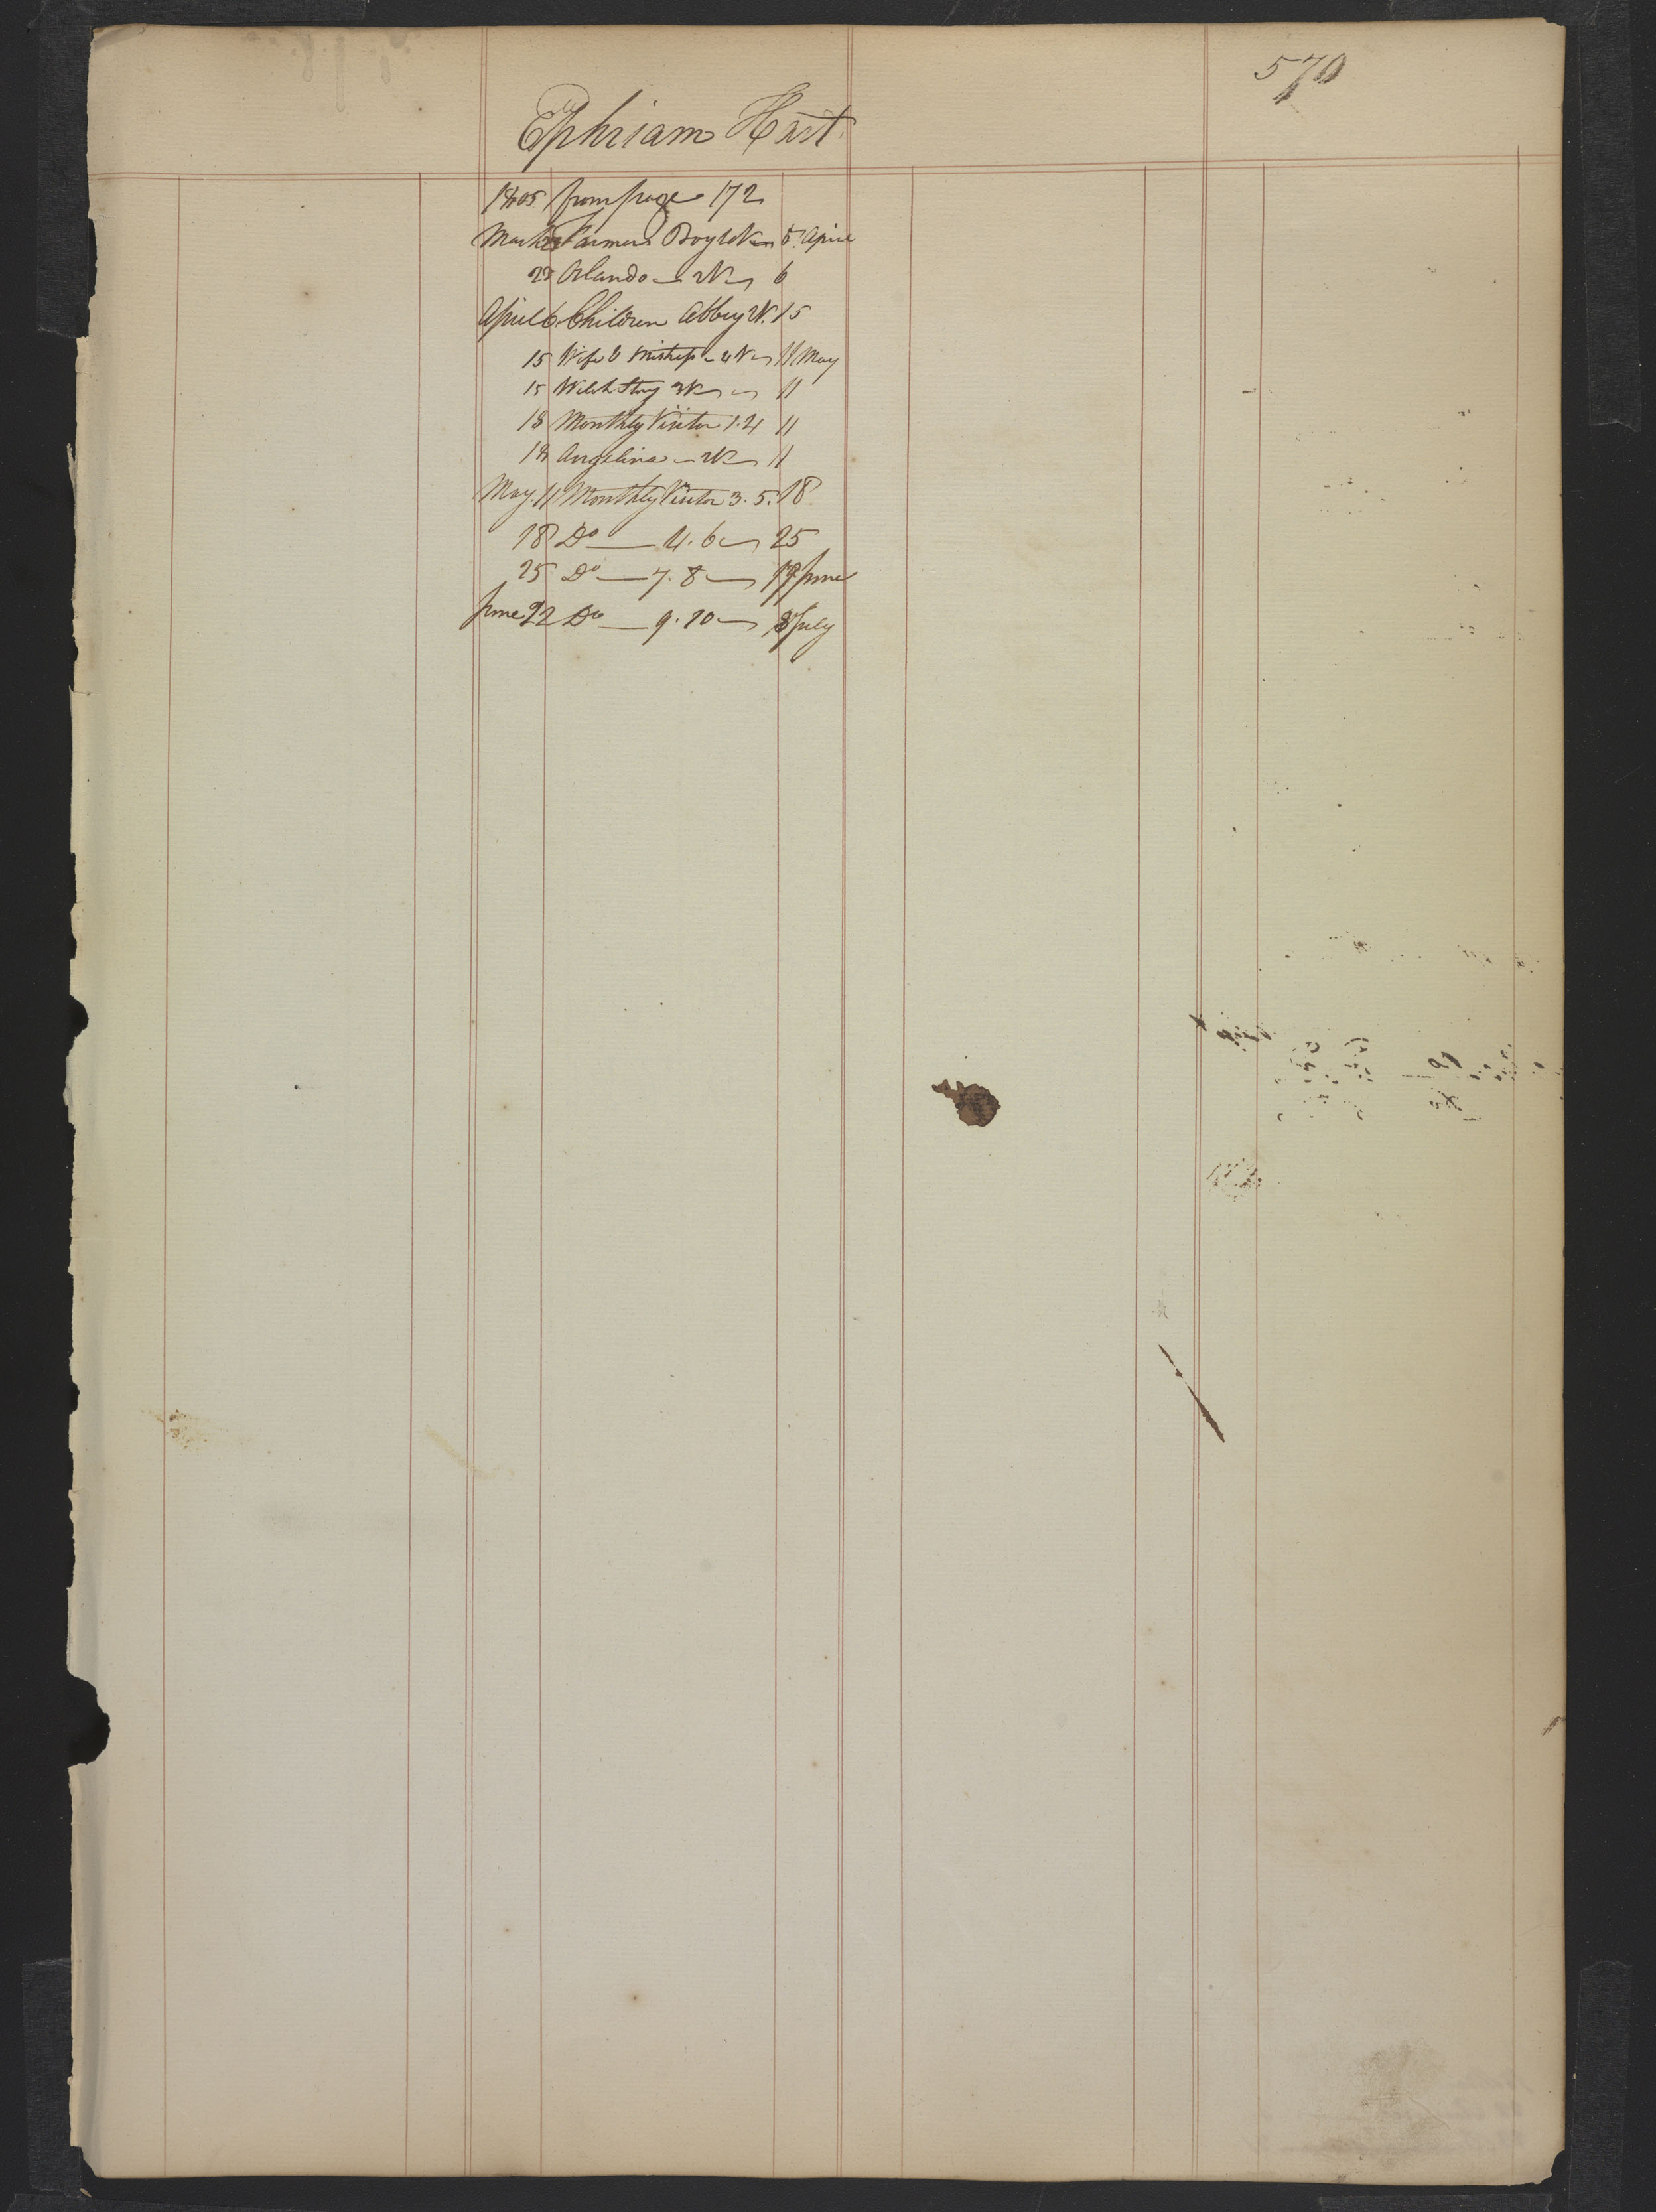 570
Ephriam Hart
1805 from page 172
March 23 Farmers Boy W 5 April
23 Orlando W 6
April 6 Children Abbey W. 15
15 Wife & Mistress 4 V 11 May
15 Welch Story W 11
18 Monthly Visitor 1.2 11
18 Angelina W 11
May. 11 Monthly Visitor 3. 5. 18
18 Do 4. 6 25
25 Do 7. 8 17 June
June 22 Do 9. 10 8 July